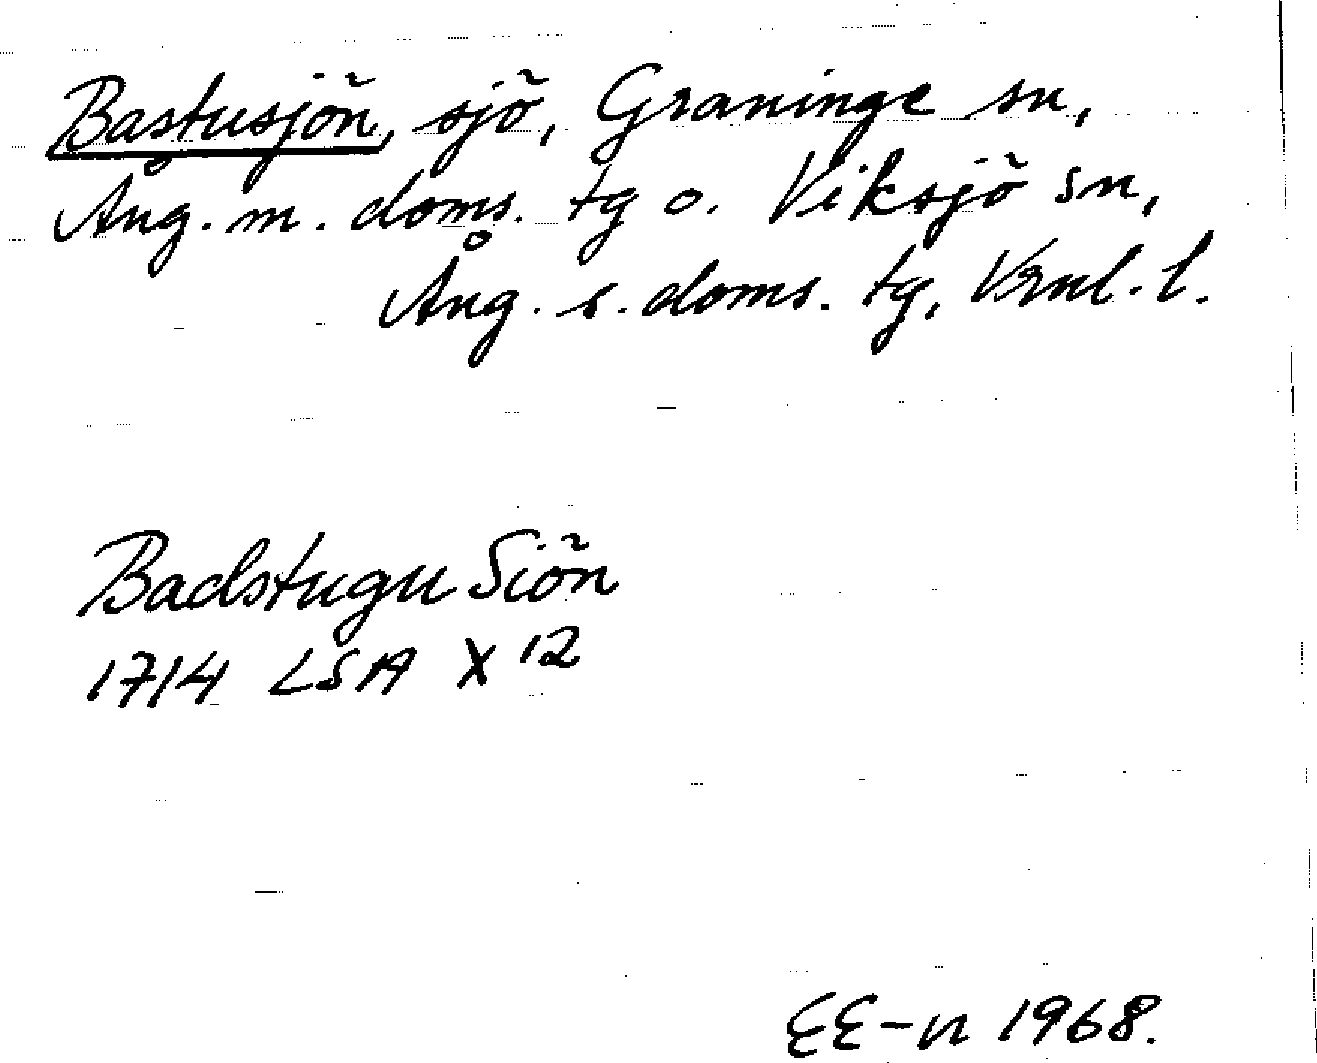 Bastusjön, sjö, Graninge sn,
Ång. m. doms. tg o. Viksjö sn,
Ång. s. doms. tg, Vrnl. l.
Badstugu Siön
1714 LSA X 12
EE-n 1968.